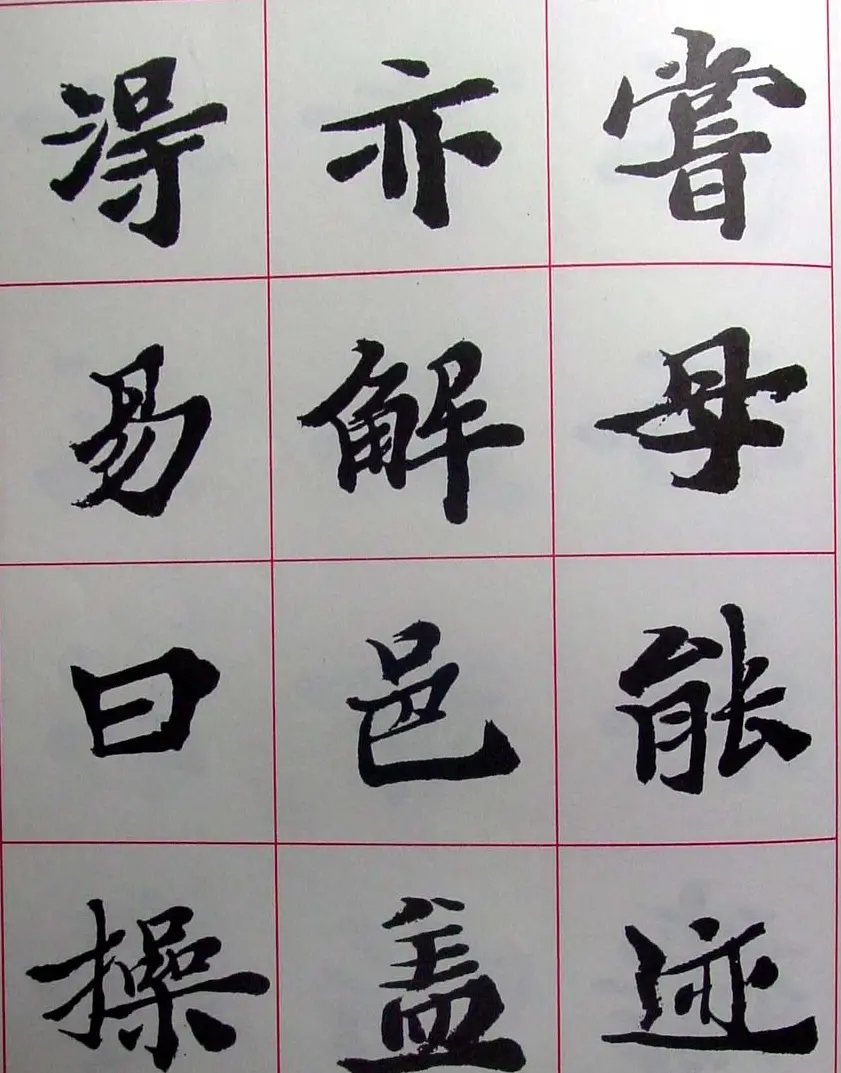 嘗母能迹
亦解邑盖
得易曰操